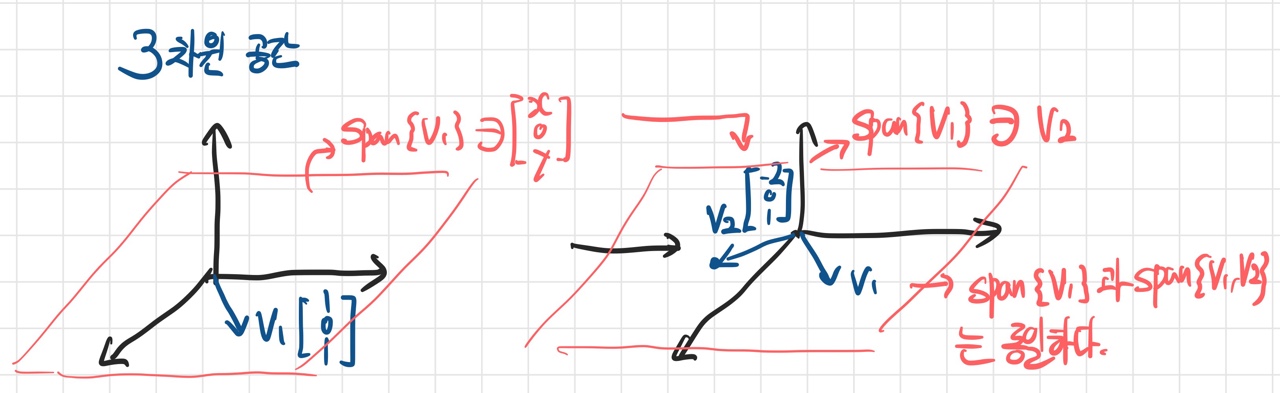 3차원 공간
span{V₁} ∋ [x 0 y]
V₁ [1 0 1]
span{V₁} ∋ V₂
V₂ [-2 0 1]
V₁
span{V₁}과 span{V₁,V₂}
는 동일하다.